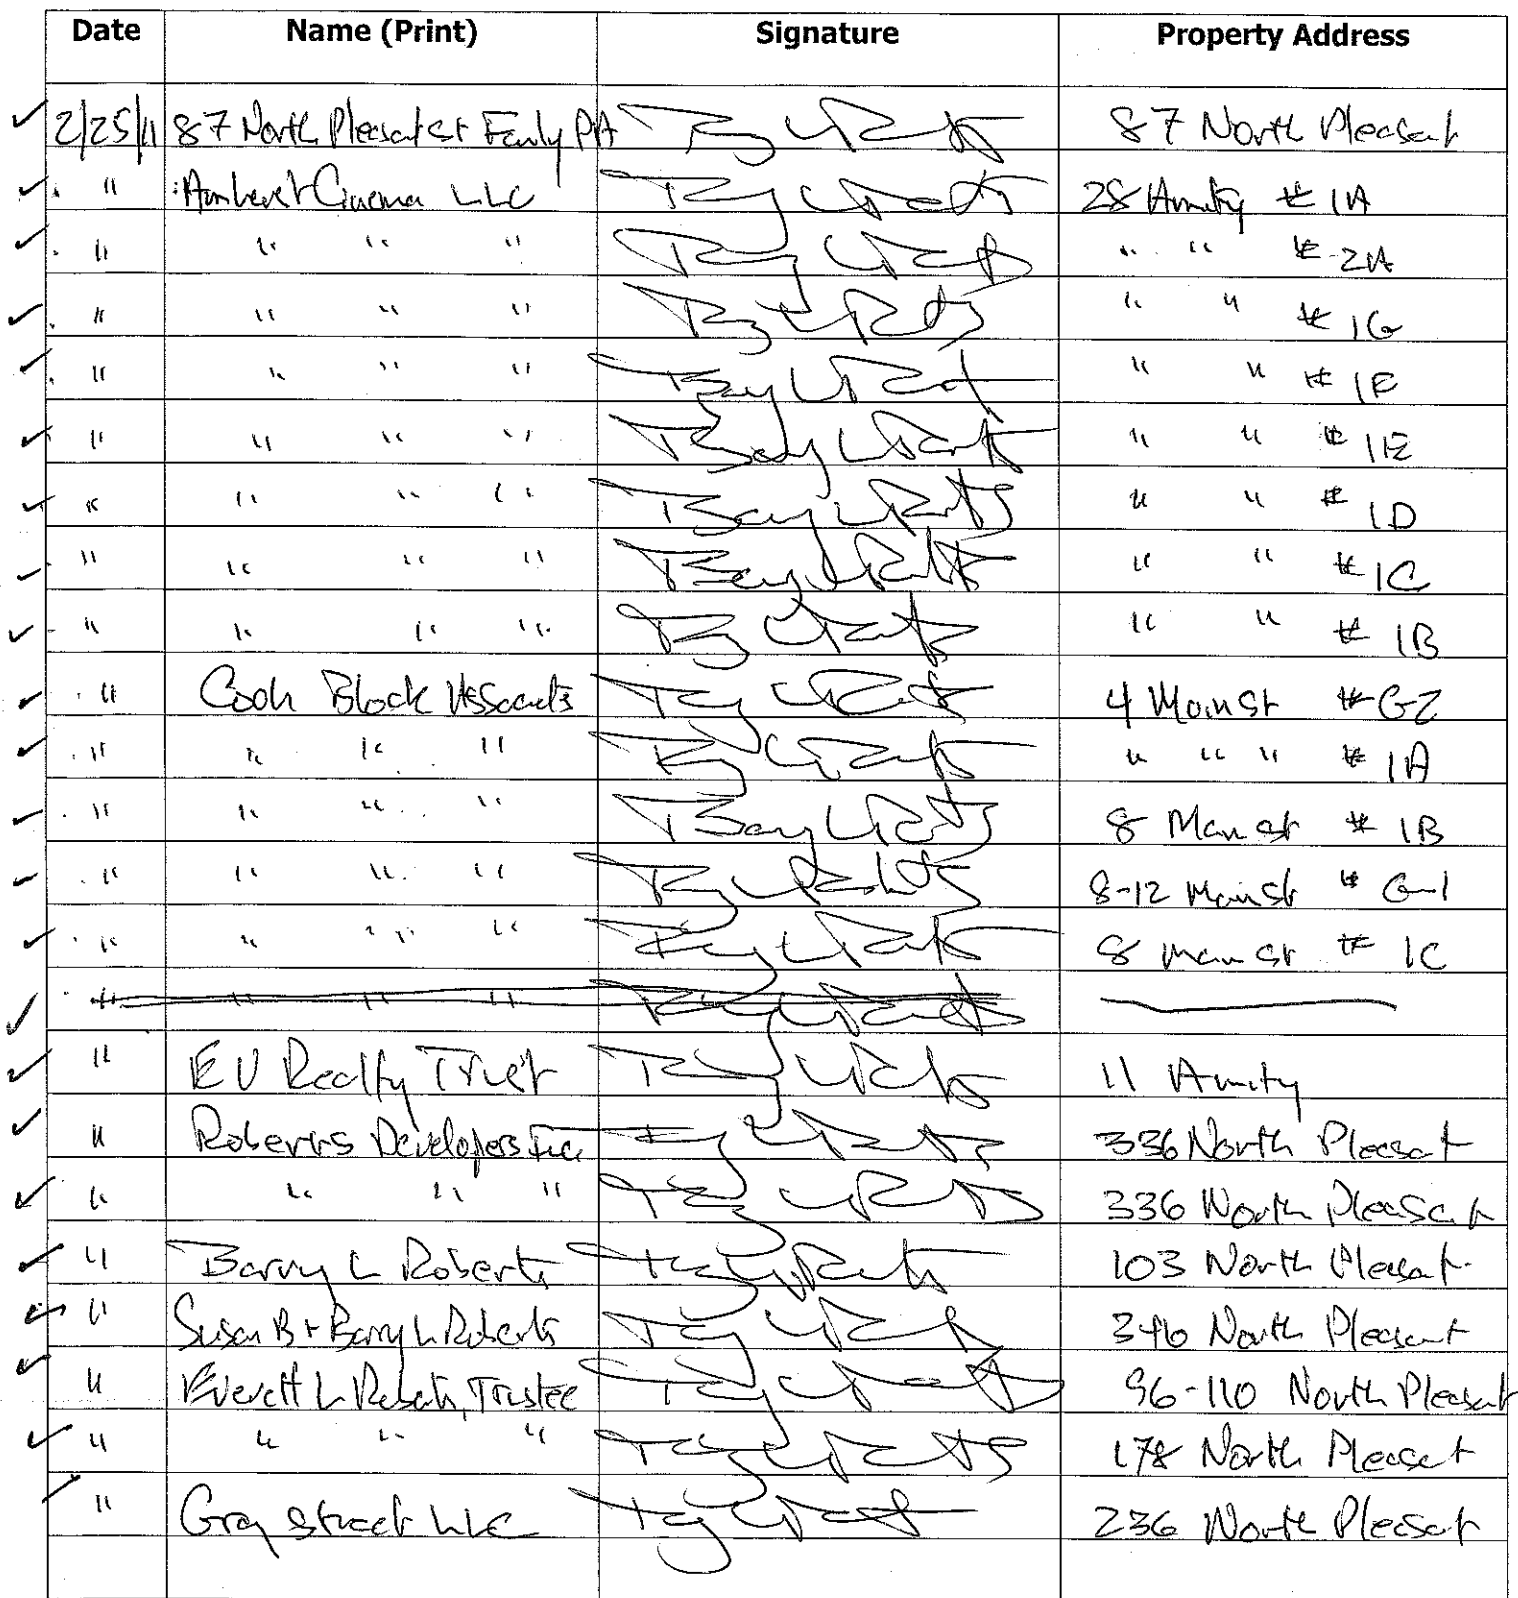 Date Name (Print) Signature Property Address
2/25/11 87 North Pleasant St Family PA 87 North Pleasant
" Amherst Cinema LLC 28 Amity # 1A
" " " " " " # 2A
" " " " " " # 1G
" " " " " " # 1F
" " " " " " # 1E
" " " " " " # 1D
" " " " " " # 1C
" " " " " " # 1B
" Cook Block Associates 4 Main St # G2
" " " " " " " # 1A
" " " " 8 Main St # 1B
" " " " 8-12 Main St # G-1
" " " " 8 Main St # 1C
" " " "
" EV Realty Trust 11 Amity
" Roberts Developers Inc 336 North Pleasant
" " " " 336 North Pleasant
" Barry L Roberts 103 North Pleasant
" Susan B + Barry L Roberts 346 North Pleasant
" Everett L Roberts, Trustee 96-110 North Pleasant
" " " " 178 North Pleasant
" Gray Street LLC 236 North Pleasant